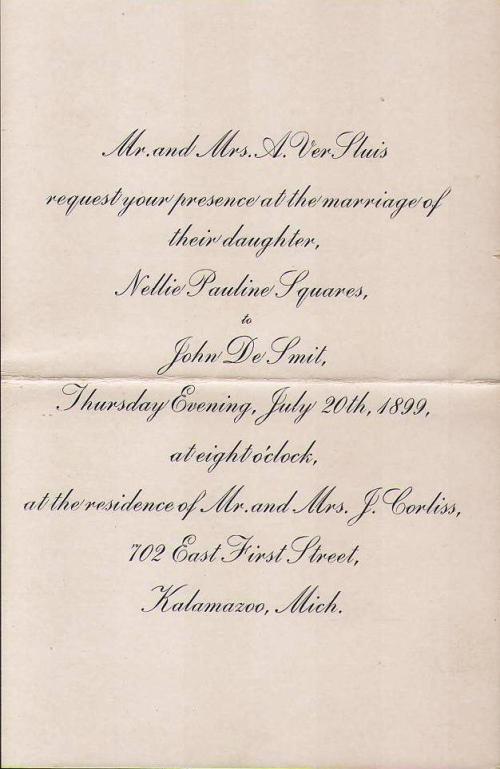 Mr. and Mrs. A. Ver Sluis
request your presence at the marriage of
their daughter,
Nellie Pauline Squares,
to
John De Smit,
Thursday Evening, July 20th, 1899,
at eight o'clock,
at the residence of Mr. and Mrs. J. Corliss,
702 East First Street,
Kalamazoo, Mich.